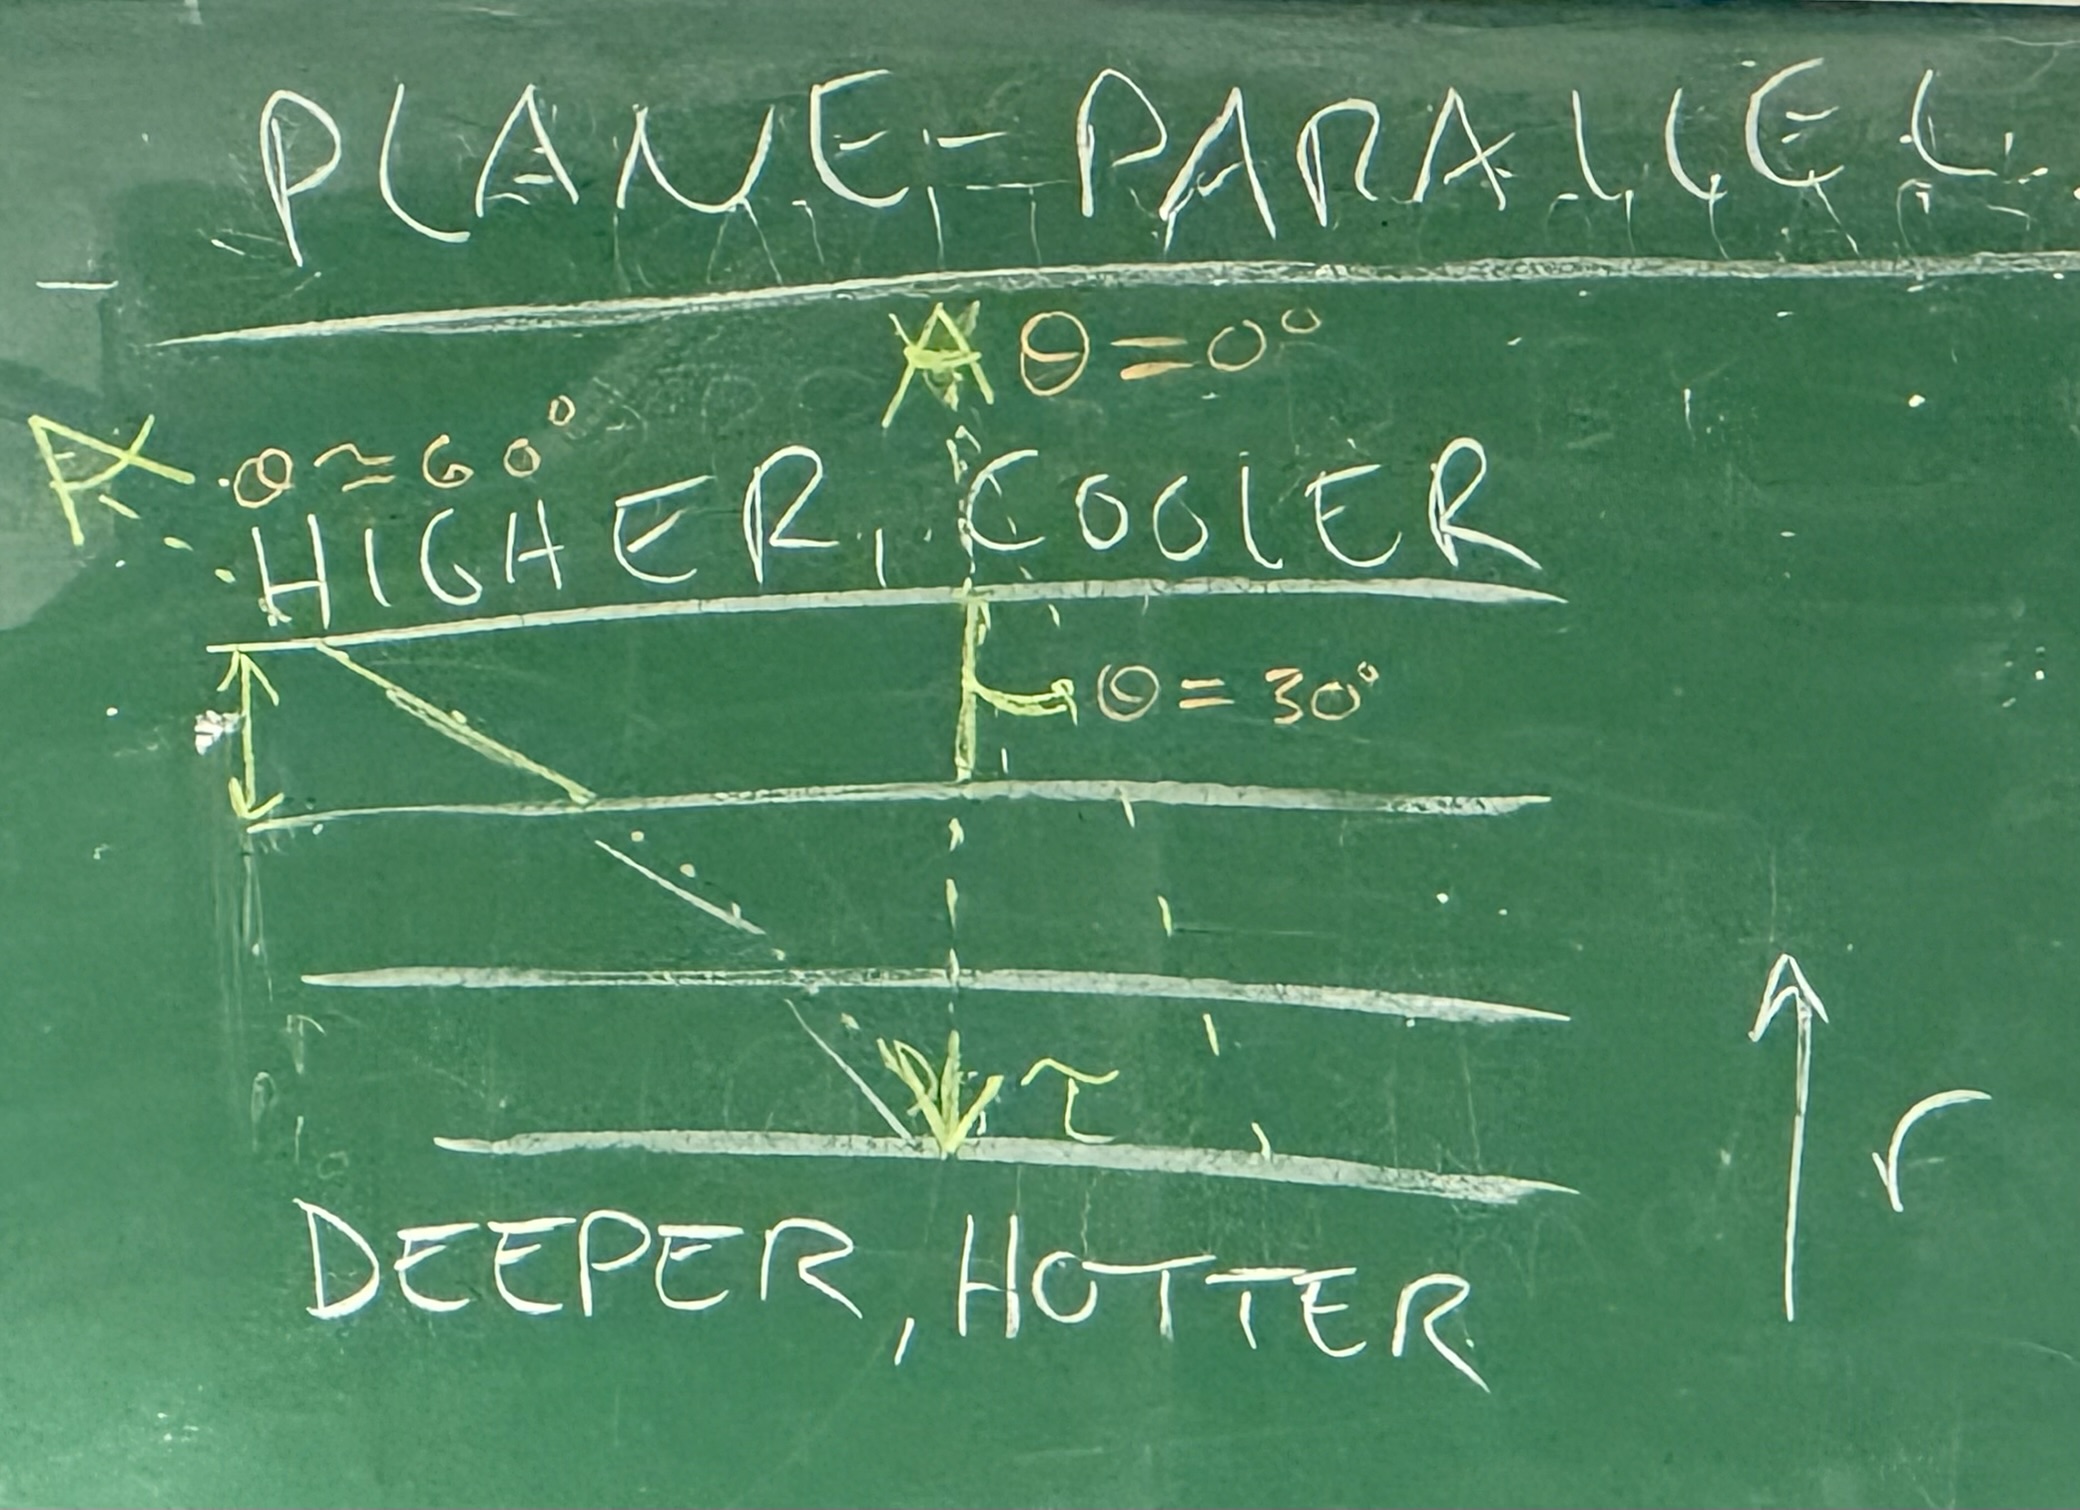 PLANE-PARALLEL
θ = 0°
θ ≃ 60°
HIGHER, COOLER
θ = 30°
τ
r
DEEPER, HOTTER